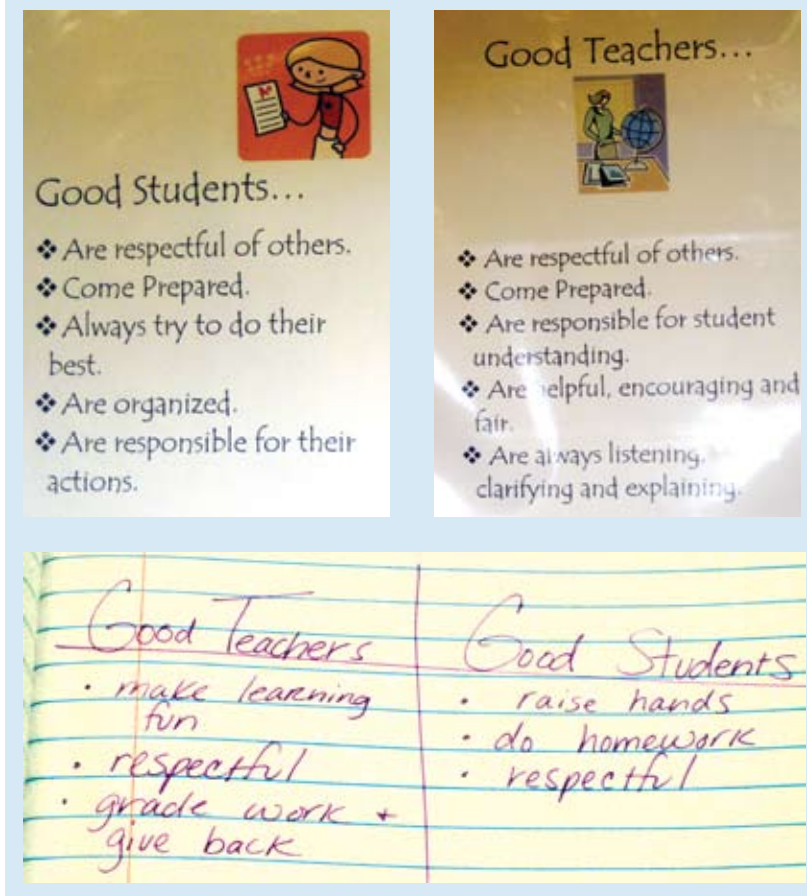 Good Students...
❖ Are respectful of others.
❖ Come Prepared.
❖ Always try to do their
best.
❖ Are organized.
❖ Are responsible for their
actions.
Good Teachers...
❖ Are respectful of others.
❖ Come Prepared.
❖ Are responsible for student
understanding.
❖ Are helpful, encouraging and
fair.
❖ Are always listening,
clarifying and explaining.
Good Teachers
• make learning
fun
• respectful
• grade work +
give back
Good Students
• raise hands
• do homework
• respectful